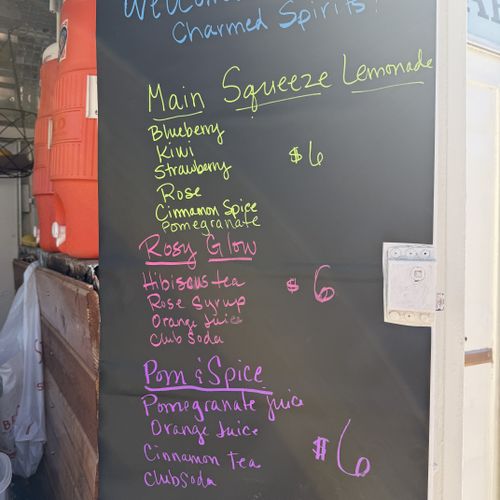 Welcome
Charmed Spirits!
Main Squeeze Lemonade
Blueberry
Kiwi
Strawberry
Rose
Cinnamon Spice
Pomegranate
$6
Rosy Glow
Hibiscus tea
Rose Syrup
Orange Juice
Club Soda
$6
Pom & Spice
Pomegranate juice
Orange Juice
Cinnamon Tea
Club Soda
$6